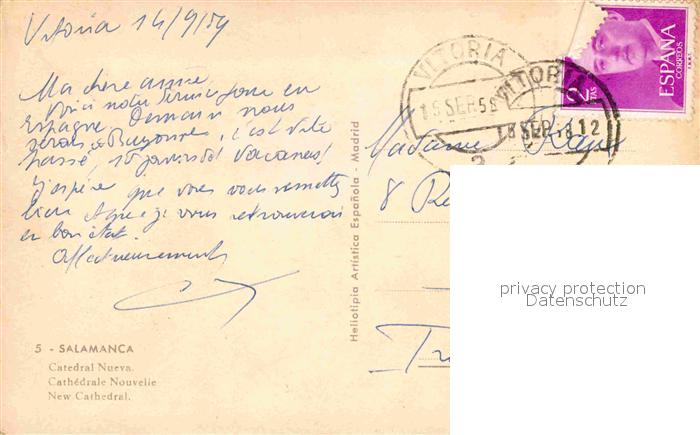 Vitoria 14/9/59
Ma chère amie.
Voici notre dernier jour en
Espagne. Demain nous
serons à Bayonne, c'est vite
passé, 15 jours de vacances!
J'espère que vous vous remettez
bien et que je vous retrouverai
en bon état.
Affectueusement
5 - SALAMANCA
Catedral Nueva.
Cathédrale Nouvelle
New Cathedral.
Heliotipia Artística Española - Madrid
VITORIA
15 SEP 58
VITORIA
SEP 58 12
2
PTAS
ESPAÑA
CORREOS
Madame
8
privacy protection
Datenschutz